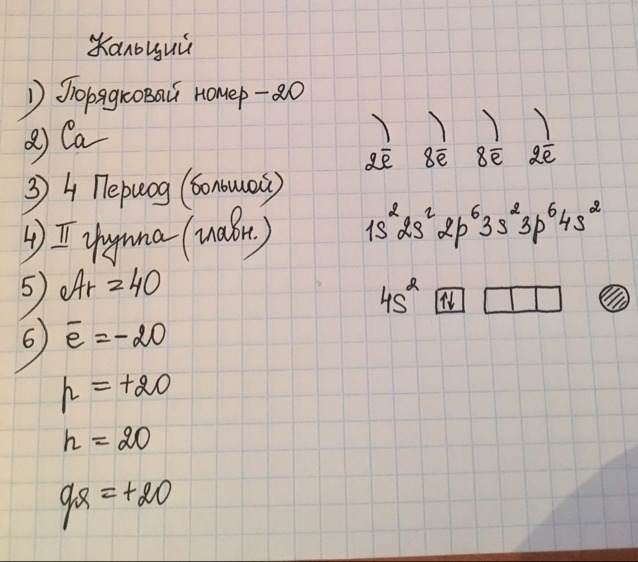 Кальций
1) Порядковый номер – 20
2) Ca
3) 4 Период (большой)
4) II группа (главн.)
5) Ar = 40
6) ē = -20
p = +20
n = 20
qя = +20
) ) ) )
2ē 8ē 8ē 2ē
1s² 2s² 2p⁶ 3s² 3p⁶ 4s²
4s² ↑↓